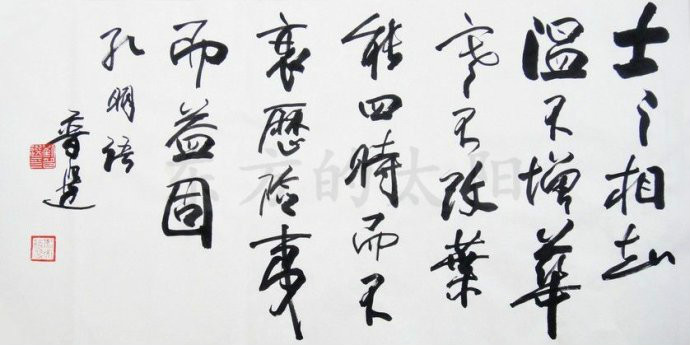 士之相知
温不增華
寒不改葉
能四時而不
衰歷險夷
而益固
孔明語
东方的太阳